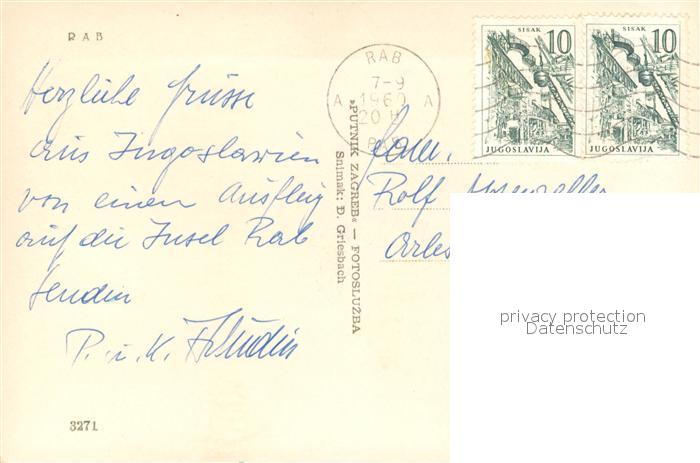 RAB
Herzliche Grüsse
aus Jugoslawien
von einem Ausflug
auf die Insel Rab
senden
P. u. K.
3271
»PUTNIK ZAGREB« — FOTOSLUŽBA
Snimak: Đ. Griesbach
RAB
7-9
A 1960 A
20 H
RAB
SISAK
10
JUGOSLAVIJA
SISAK
10
JUGOSLAVIJA
Fam.
Rolf
privacy protection
Datenschutz